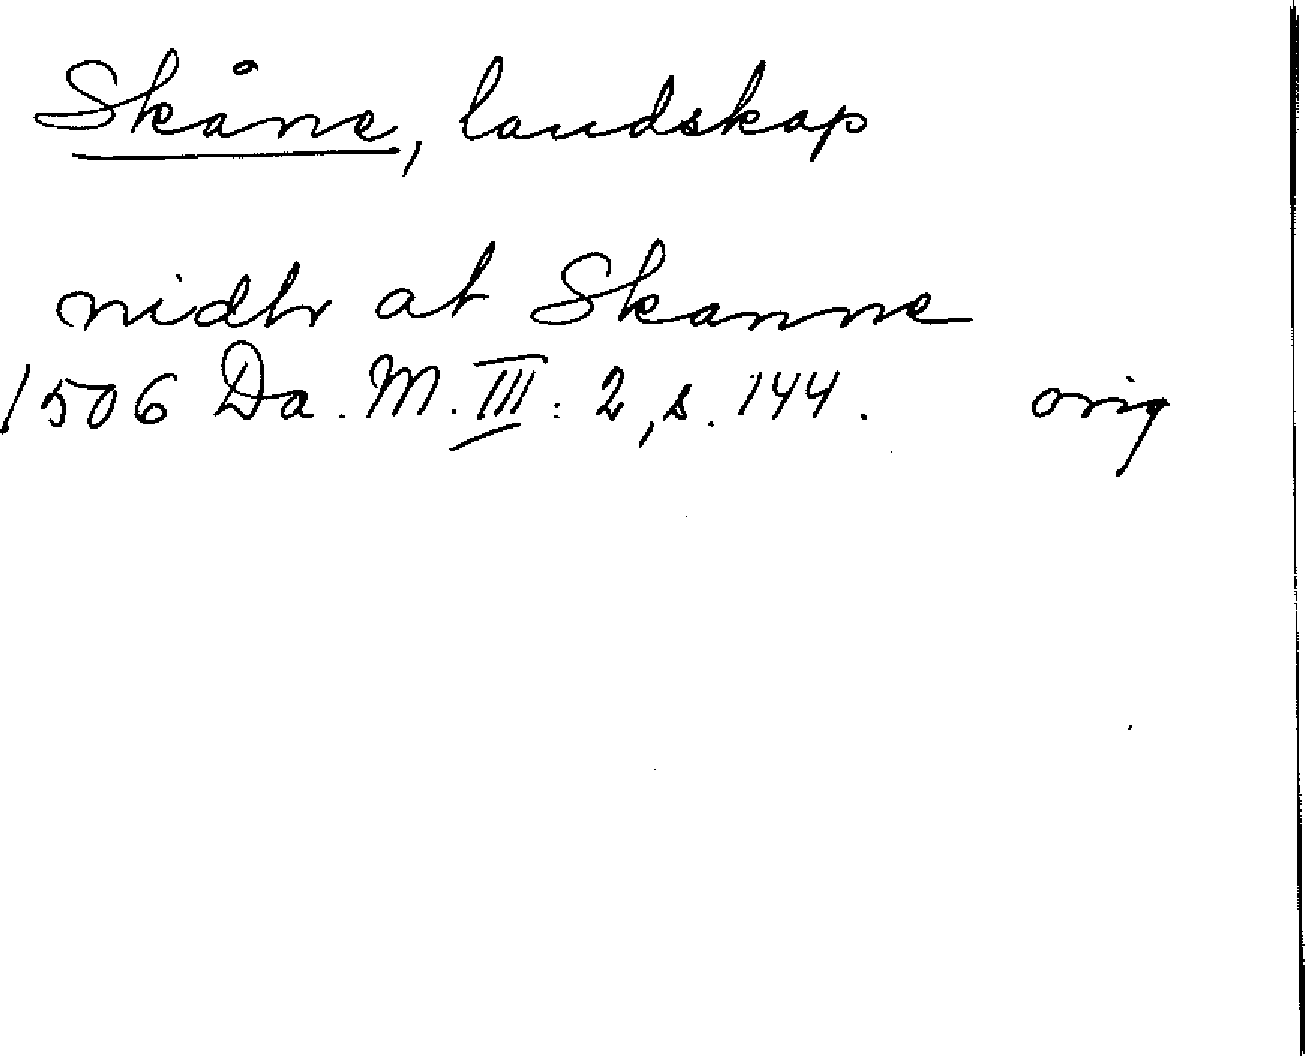 Skåne, landskap
nidhr at Skanne
1506 Da. M. III: 2, s. 144. orig